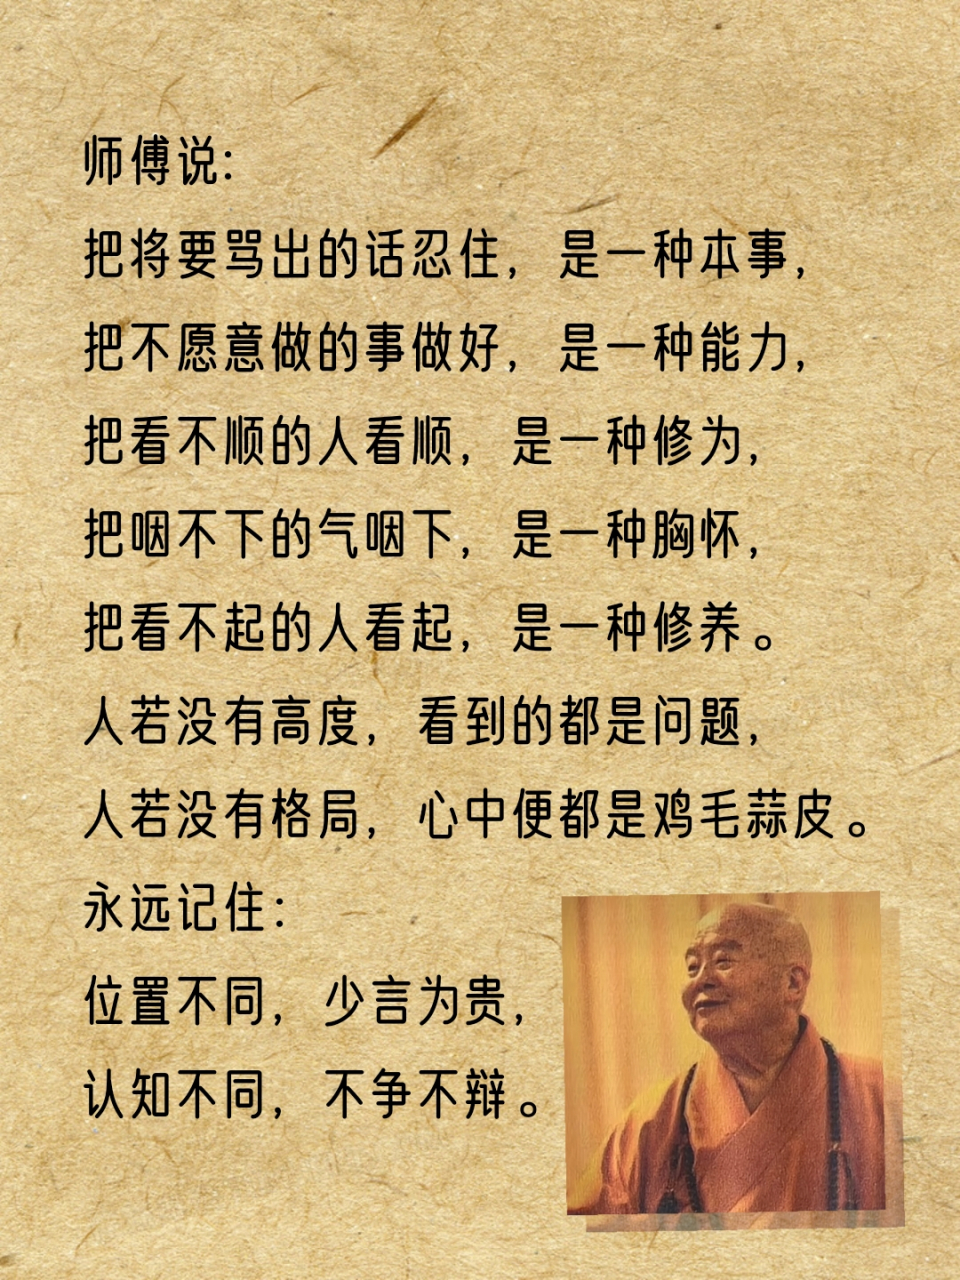 师傅说:
把将要骂出的话忍住，是一种本事，
把不愿意做的事做好，是一种能力，
把看不顺的人看顺，是一种修为，
把咽不下的气咽下，是一种胸怀，
把看不起的人看起，是一种修养。
人若没有高度，看到的都是问题，
人若没有格局，心中便都是鸡毛蒜皮。
永远记住：
位置不同，少言为贵，
认知不同，不争不辩。